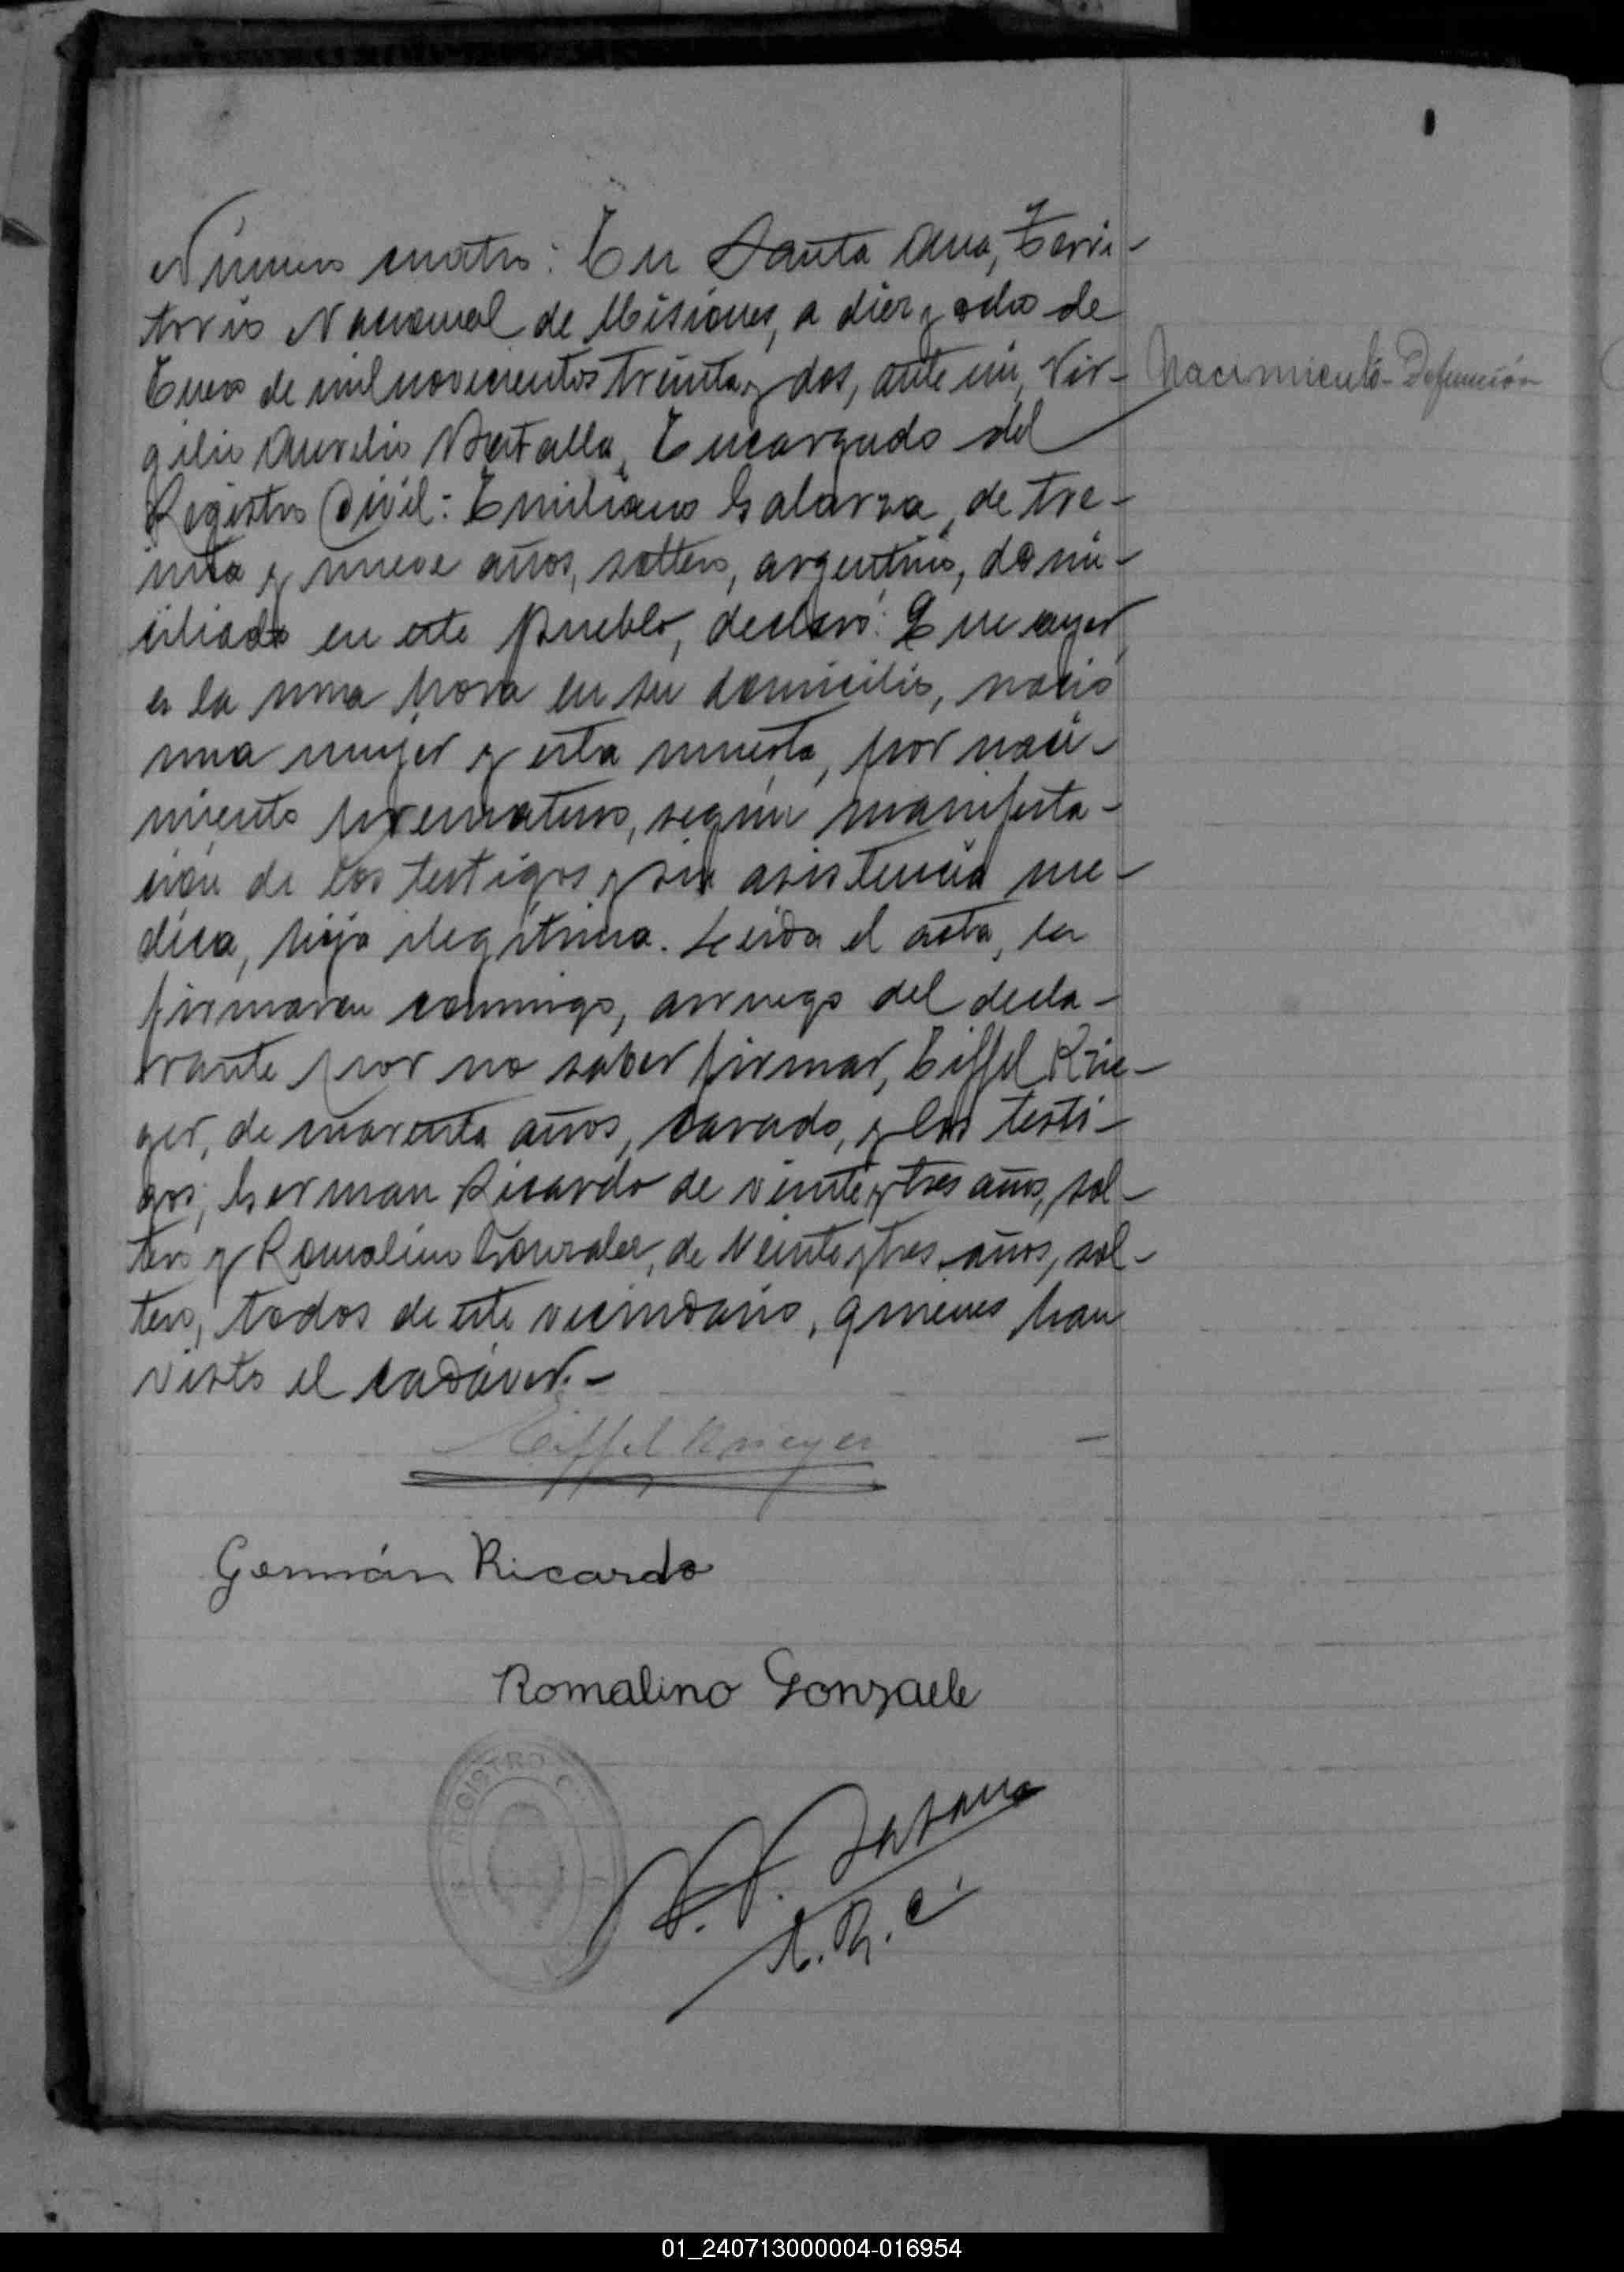 Número cuatro: En Santa Ana, Terri-
torio Nacional de Misiones, a diez y ocho de
Enero de mil novecientos treinta y dos, ante mi, Vir-
gilio Aurelio Batalla, Encargado del
Registro Civil: Emiliano Galarza, de tre-
inta y nueve años, soltero, argentino, domi-
ciliado en este pueblo, declaró: Que ayer
a la una hora en su domicilio, nació
una mujer y esta muerta, por naci-
miento prematuro, según manifesta-
ción de los testigos y sin asistencia me-
dica, hija ilegítima. Leida el acta, la
firmaron conmigo, a ruego del decla-
rante por no saber firmar, Eiffel Krie-
ger, de cuarenta años, casado, y los testi-
gos; German Ricardo de veinte y tres años, sol-
tero y Romalino Gonzalez, de veinte y tres años, sol-
tero, todos de este vecindario, quienes han
visto el cadáver.-
Nacimiento-Defunción
Eiffel Krieger
Germán Ricardo
Romalino Gonzaele
REGISTRO C
E. R. C.
01_240713000004-016954